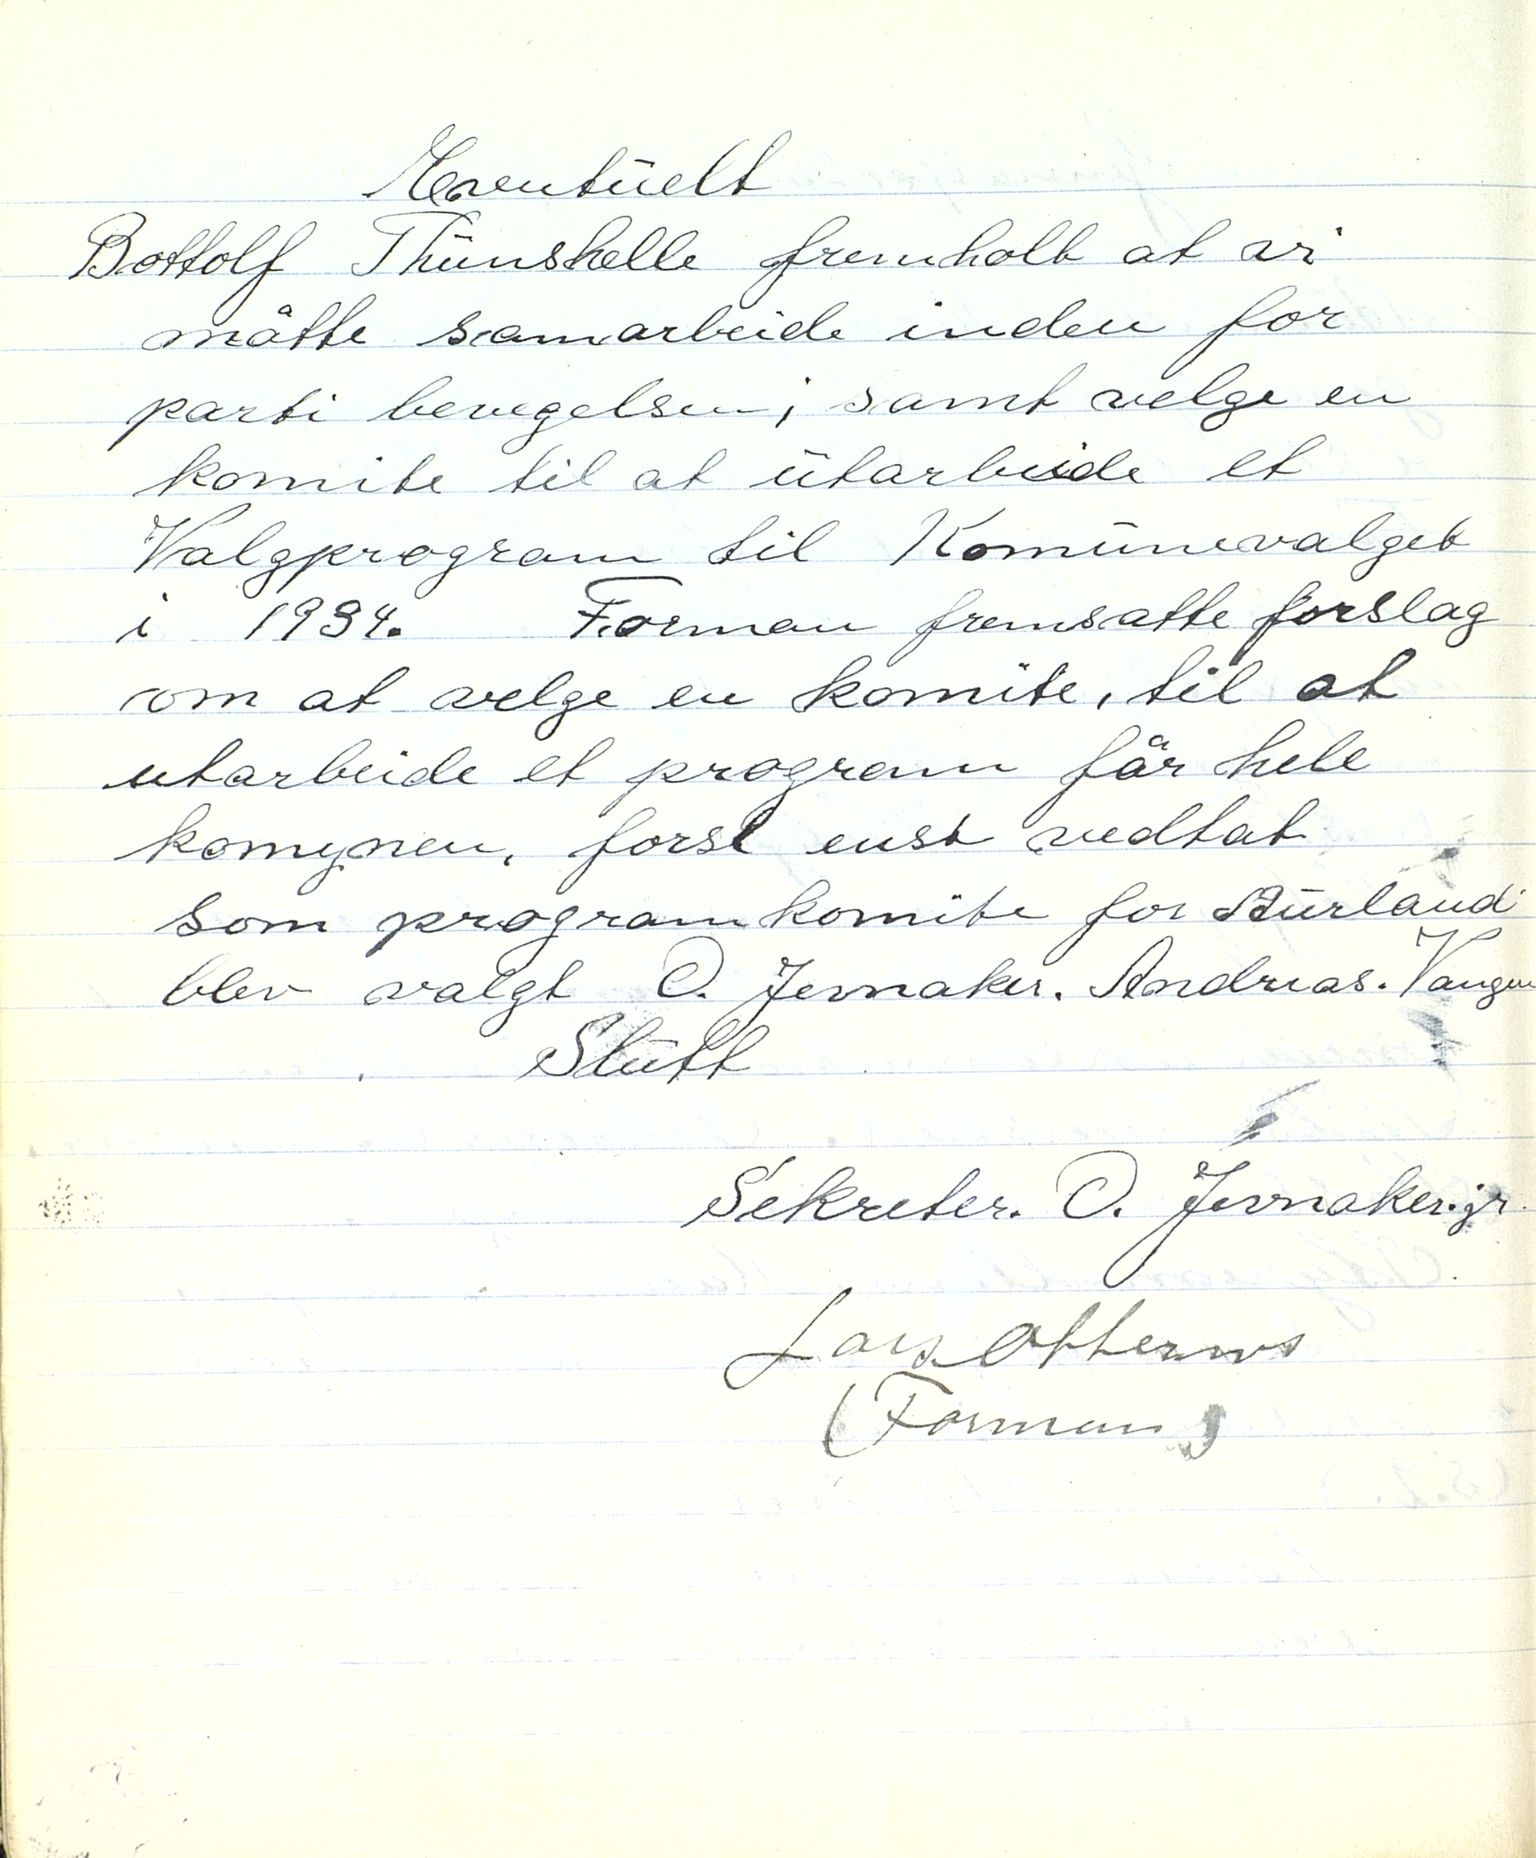 Eventuelt
Bottolf Thunshelle fremholt at vi
måtte samarbeide inden for
parti bevegelsen, samt velge en
komite til at utarbeide et
Valgprogram til Komunevalget
i 1934. Forman fremsatte forslag
om at velge en komite, til at
utarbeide et program får hele
komynen, forsl enst vedtat
som programkomite for Aurland
blev valgt O. Jevnaker. Andreas. Vangen
Slutt
Sekreter. O. Jevnaker. jr.
Lars Otternes
(Forman)